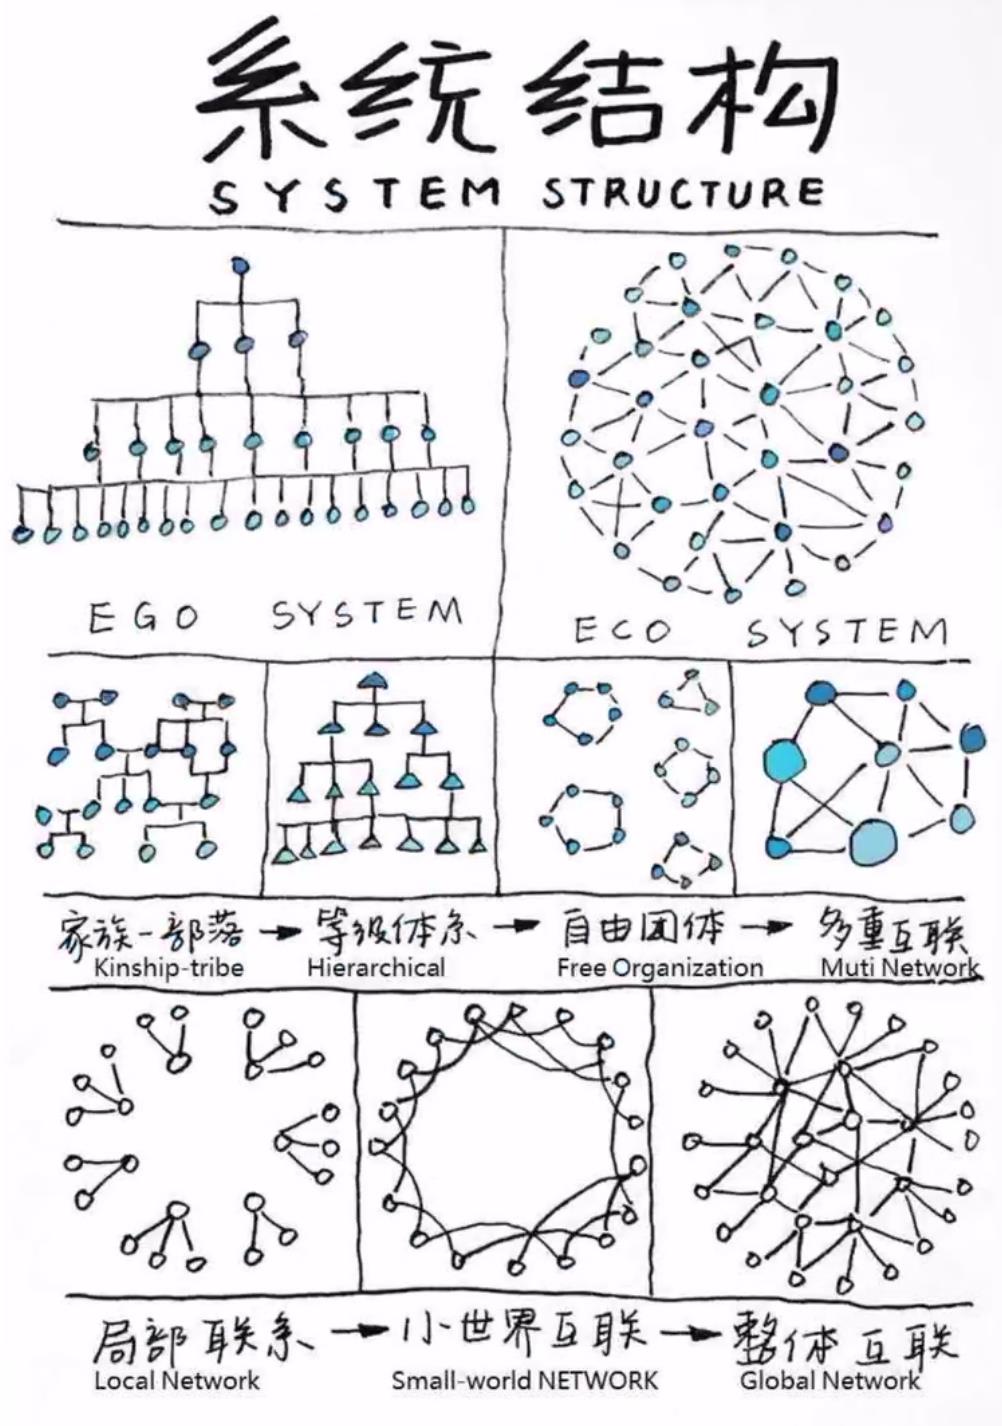 系统结构
SYSTEM STRUCTURE
EGO SYSTEM
ECO SYSTEM
家族-部落 → 等级体系 → 自由团体 → 多重互联
Kinship-tribe Hierarchical Free Organization Muti Network
局部联系 → 小世界互联 → 整体互联
Local Network Small-world NETWORK Global Network